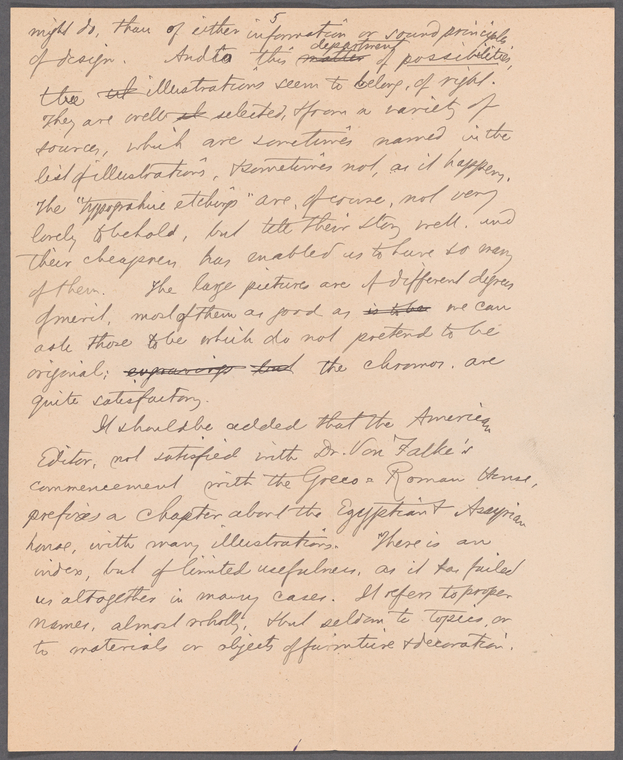 5
might do, than of either information or sound principle
of design. And to this matter department of possibilities,
the illustrations seem to belong, of right.
They are well selected, & from a variety of
sources, which are sometimes named in the
list of illustrations, & sometimes not, as it happens.
The "typographic etchings" are, of course, not very
lovely to behold, but tell their story well. and
their cheapness has enabled us to have so many
of them. The large pictures are of different degrees
of merit, most of them as good as is to be we can
ask those to be which do not pretend to be
original; engravings but the chromos. are
quite satisfactory.
It should be added that the American
Editor, not satisfied with Dr. Von Falke's
commencement with the Greco-Roman House,
prefixes a chapter about the Egyptian & Assyrian
house, with many illustrations. There is an
index, but of limited usefulness, as it has failed
us altogether in many cases. It refers to proper
names, almost wholly, & but seldom to topics, or
to materials or objects of furniture & decoration.